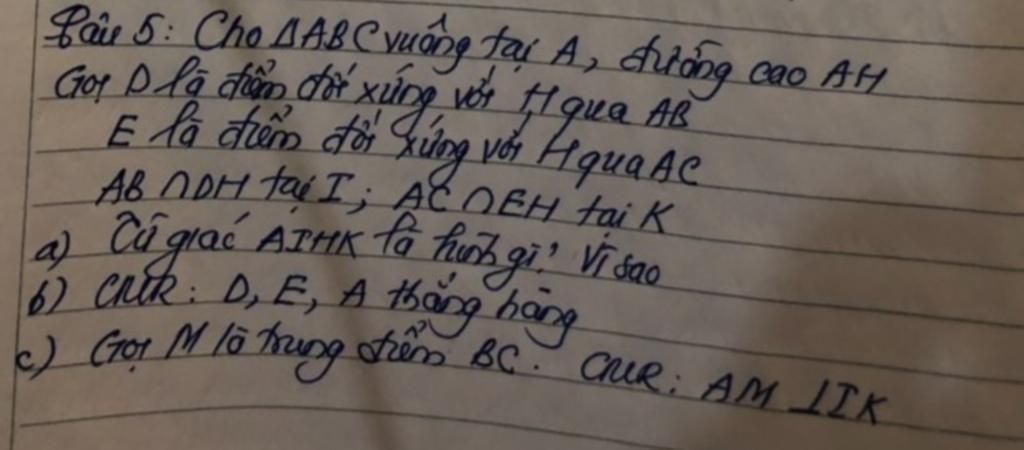 Bài 5: Cho ΔABC vuông tại A, đường cao AH
Gọi D là điểm đối xứng với H qua AB
E là điểm đối xứng với H qua AC
AB ∩ DH tại I; AC ∩ EH tại K
a) Tứ giác AIHK là hình gì? Vì sao
b) CMR: D, E, A thẳng hàng
c) Gọi M là trung điểm BC. CMR: AM ⊥ IK